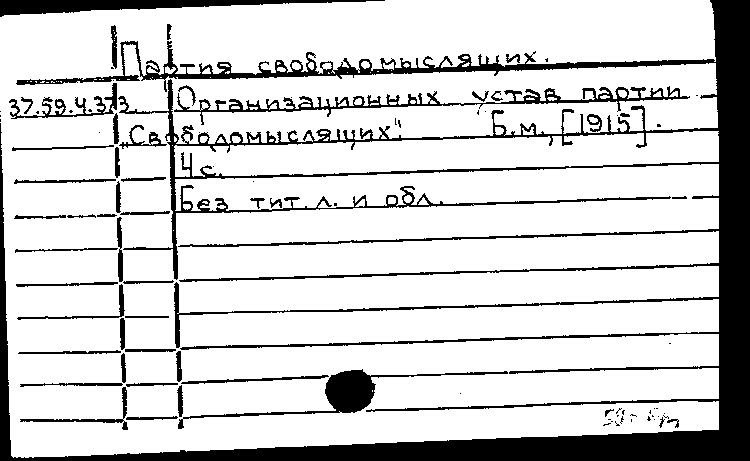 Партия свободомыслящих.
37.59.4.373 Организационных устав партии
„Свободомыслящих". Б.м., [1915].
4 с.
Без тит. л. и обл.